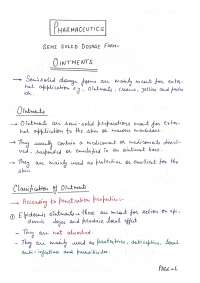 PHARMACEUTICS
SEMI SOLID DOSAGE FORM-
OINTMENTS
→ Semisolid dosage forms are mainly meant for exter-
nal application e.g. Ointments, creams, jellies and paste
etc.
Ointments
→ Ointments are semi-solid preparations meant for exter-
nal application to the skin or mucous membrane.
→ They usually contain a medicament or medicaments dissol-
ved, suspended or emulsified in an ointment base.
→ They are mainly used as protective or emollient for the
skin.
Classification of Ointments
→ According to penetration properties:-
① Epidermic ointments → these are meant for action on epi-
dermis layer and produce local effect
- They are not absorbed.
- They are mainly used as protectives, antiseptics, local
anti-inflation and parasiticides.
PAGE-1